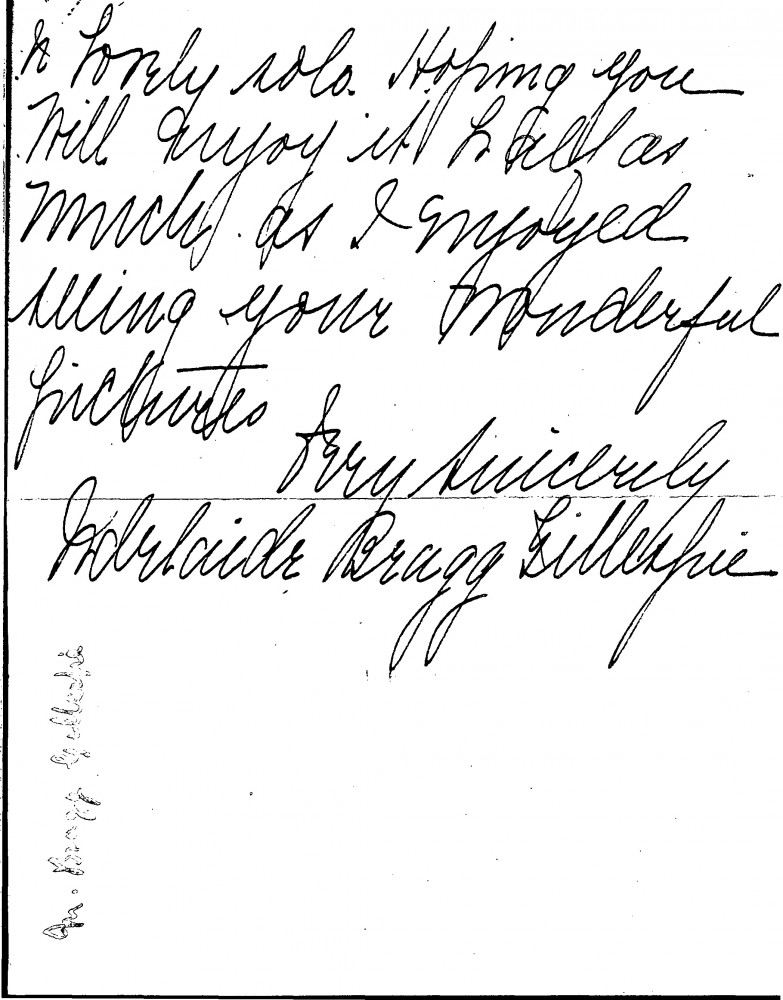 a lovely solo. Hoping you
Will enjoy it half as
much as I enjoyed
seeing your wonderful
pictures
Very sincerely
Adelaide Bragg Gillespie
Bragg Gillespie